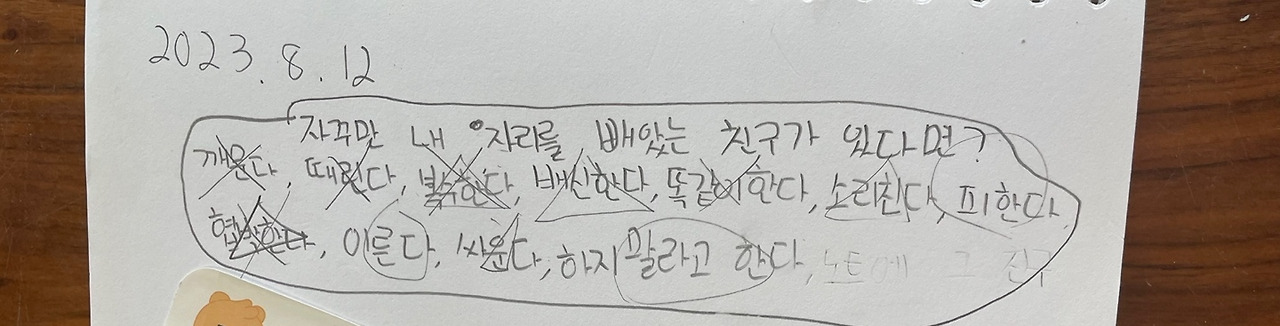 2023. 8. 12
자꾸만 내 자리를 빼앗는 친구가 있다면?
깨운다, 때린다, 복수한다, 배신한다, 똑같이 한다, 소리친다, 피한다
협박한다, 이른다, 싸운다, 하지 말라고 한다, 노트에 그 친구